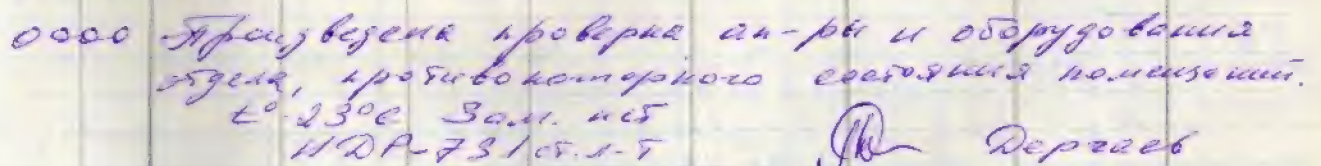 0000 Произведена проверка ап-ры и оборудования
отдела, противопожарного состояния помещений.
t°-23°С Зам. нет
НДР-731 ст.л-т Дергаев